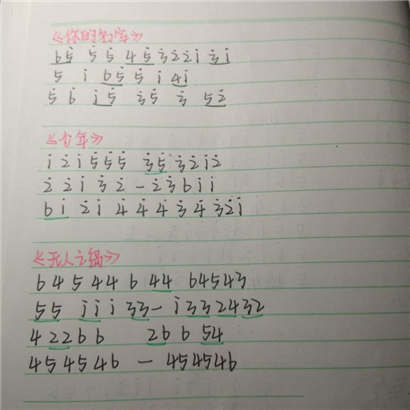 《你的　》
6̇5̇ 5̇ 5̇ 4̇ 5̇ 3̇ 2̇ 2̇ 1̇ 3̇ 1̇
5 1̇ 6̇5̇ 5̇ 1̇ 4̇1̇
5̇ 6 1̇5̇ 3̇5̇ 3̇ 5̇2̇
《少年》
1̇ 2̇ 1̇ 5̇ 5̇ 5̇ 3̇5̇ 3̇ 2̇ 1̇ 2̇
2̇ 2̇ 1̇ 3̇ 2̇ - 2̇ 3̇ 6 1̇ 1̇
61̇ 2̇1̇ 4̇ 4̇ 4̇ 3̇ 4̇ 3̇2̇1̇
《无人之岛》
6 4 5 4 4 6 44 6 4 5 4 3
55 1̇1̇ 1̇ 33- 1̇ 33 24 32
4 22 6 6 2 6 6 54
4 5 4 5 4 6 - 4 5 4 5 4 6